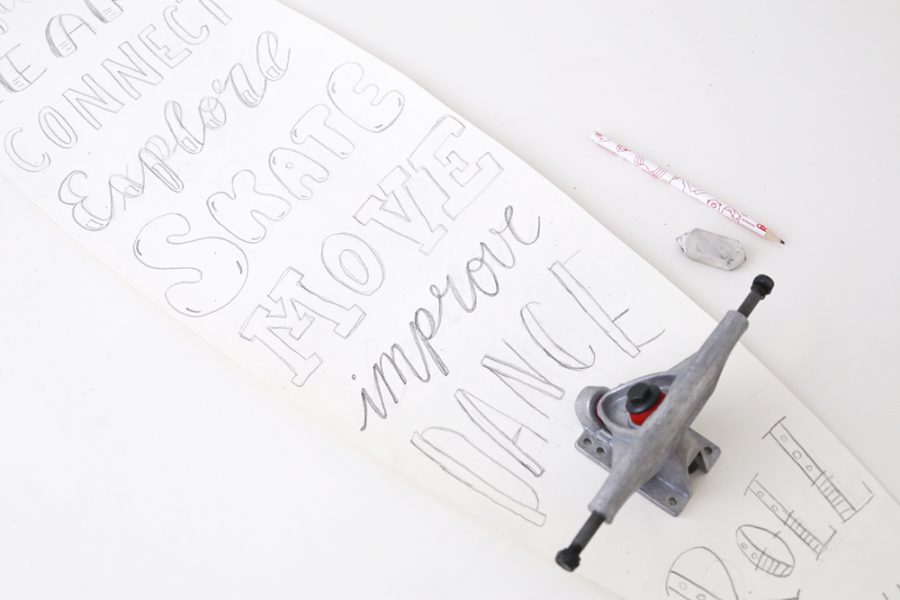 CONNECT
Explore
SKATE
MOVE
improve
DANCE
ROLL